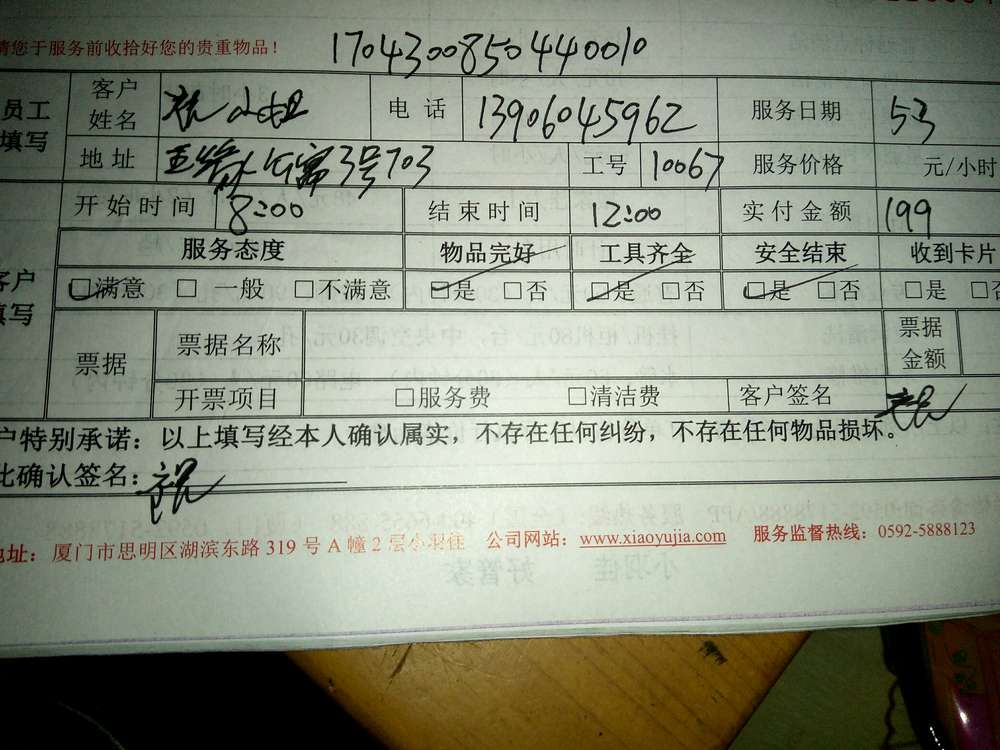 请您于服务前收拾好您的贵重物品！ 1704300850440010
员工填写 客户姓名 小姐 电话 13906045962 服务日期 53
地址 3号703 工号 10067 服务价格 元/小时
客户填写 开始时间 8:00 结束时间 12:00 实付金额 199
服务态度 物品完好 工具齐全 安全结束 收到卡片
□满意 □一般 □不满意 □是 □否 □是 □否 □是 □否 □是 □否
票据 票据名称 票据金额
开票项目 □服务费 □清洁费 客户签名
户特别承诺：以上填写经本人确认属实，不存在任何纠纷，不存在任何物品损坏。
此确认签名：
地址：厦门市思明区湖滨东路319号A幢2层小羽佳 公司网站：www.xiaoyujia.com 服务监督热线：0592-5888123